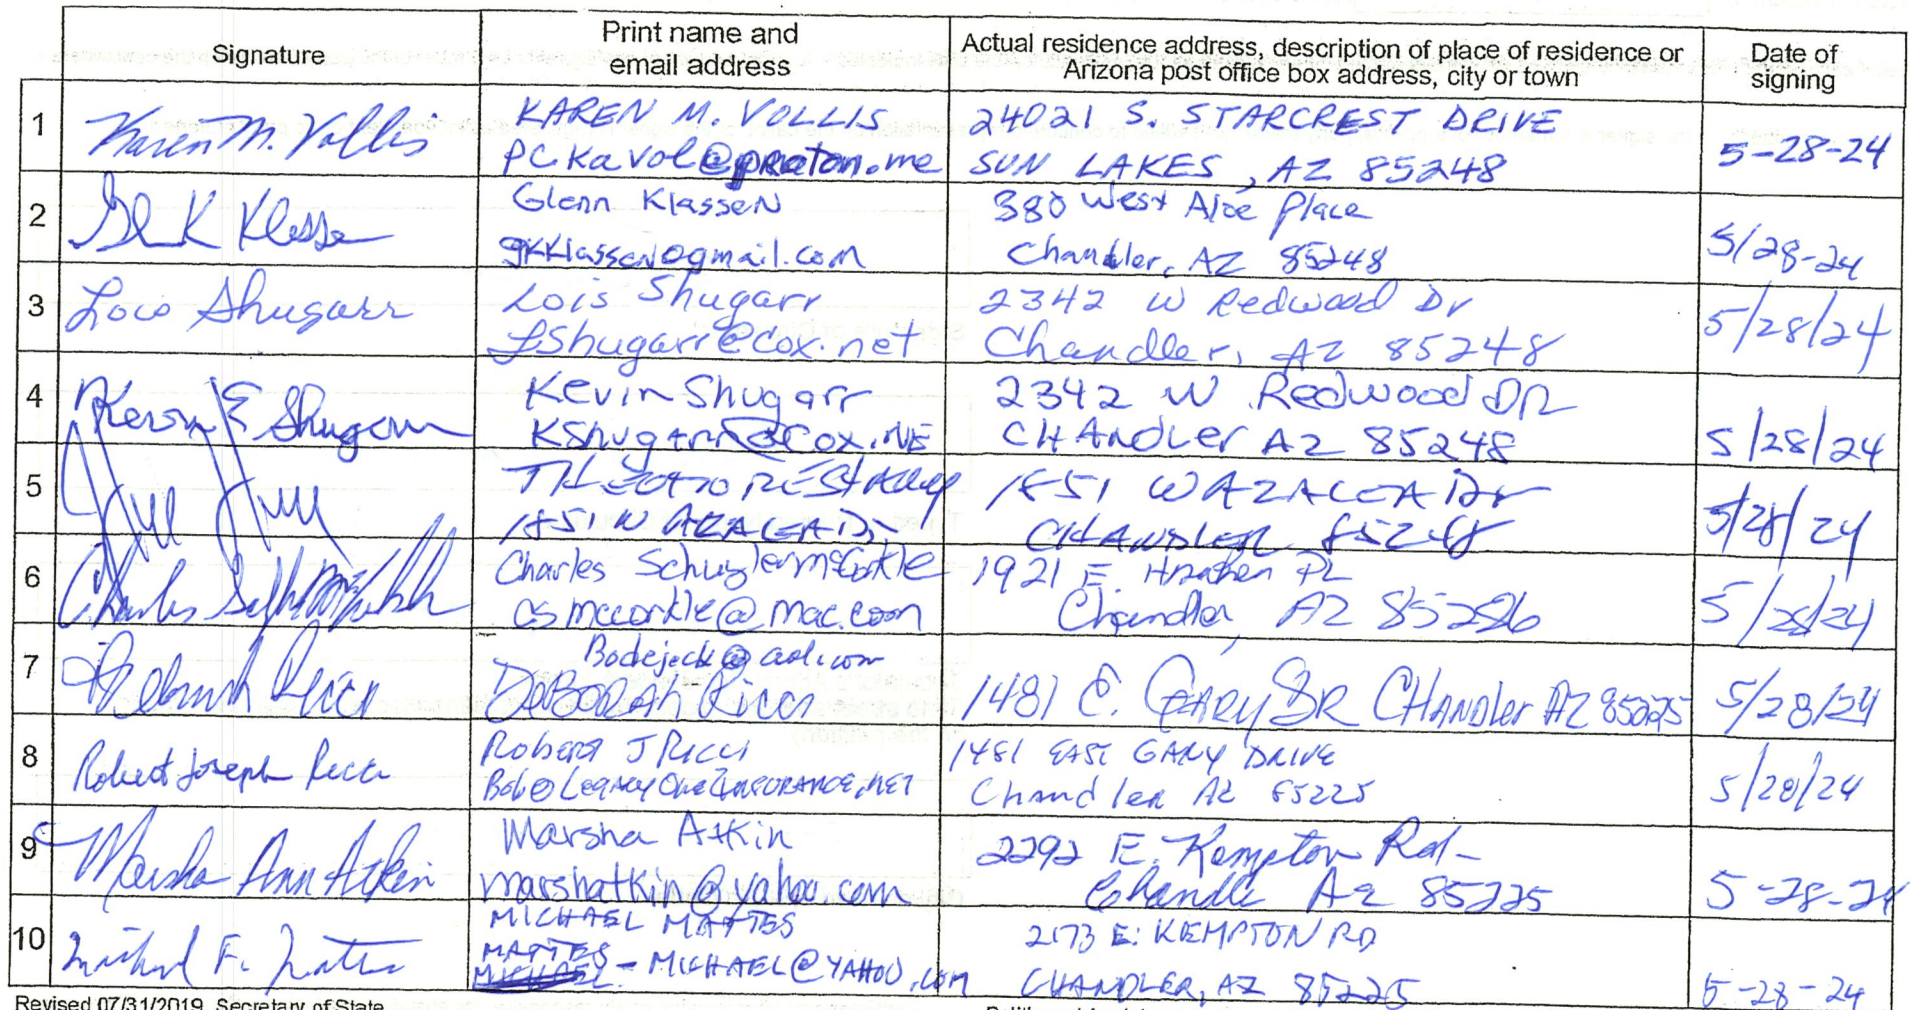 Signature
Print name and
email address
Actual residence address, description of place of residence or
Arizona post office box address, city or town
Date of
signing
1
Karen M. Vollis
KAREN M. VOLLIS
pckavol@proton.me
24021 S. STARCREST DRIVE
SUN LAKES, AZ 85248
5-28-24
2
Gl K Klassen
Glenn Klassen
gkklassen@gmail.com
380 West Aloe Place
Chandler, AZ 85248
5/28-24
3
Lois Shugarr
Lois Shugarr
LShugarr@cox.net
2342 W Redwood Dr
Chandler, AZ 85248
5/28/24
4
Kevin E Shugarr
Kevin Shugarr
KShugarr@Cox.NE
2342 W Redwood DR
CHAndler AZ 85248
5/28/24
5
1851 W AZALEA Dr
1851 W AZALEA Dr
CHANDLER 85248
5/28/24
6
Charles
Charles Schuyler McCorkle
csmccorkle@mac.com
1921 E. PL
Chandler, AZ 85286
5/28/24
7
Deborah Ricci
Bodejeck@aol.com
DeBORAH Ricci
1481 E. GARY DR CHANdler AZ 85225
5/28/24
8
Robert Joseph Ricci
Robert J Ricci
Bob@LegacyOneInsurance.net
1481 EAST GARY DRIVE
Chandler AZ 85225
5/28/24
9
Marsha Ann Atkin
Marsha Atkin
marshatkin@yahoo.com
2292 E. Kempton Rd-
Chandle Az 85225
5-28-24
10
Michael F. Mattes
MICHAEL MATTES
MATTES
- MICHAEL@YAHOO.COM
2173 E. KEMPTON RD
CHANDLER, AZ 85225
5-28-24
Revised 07/31/2019, Secretary of State